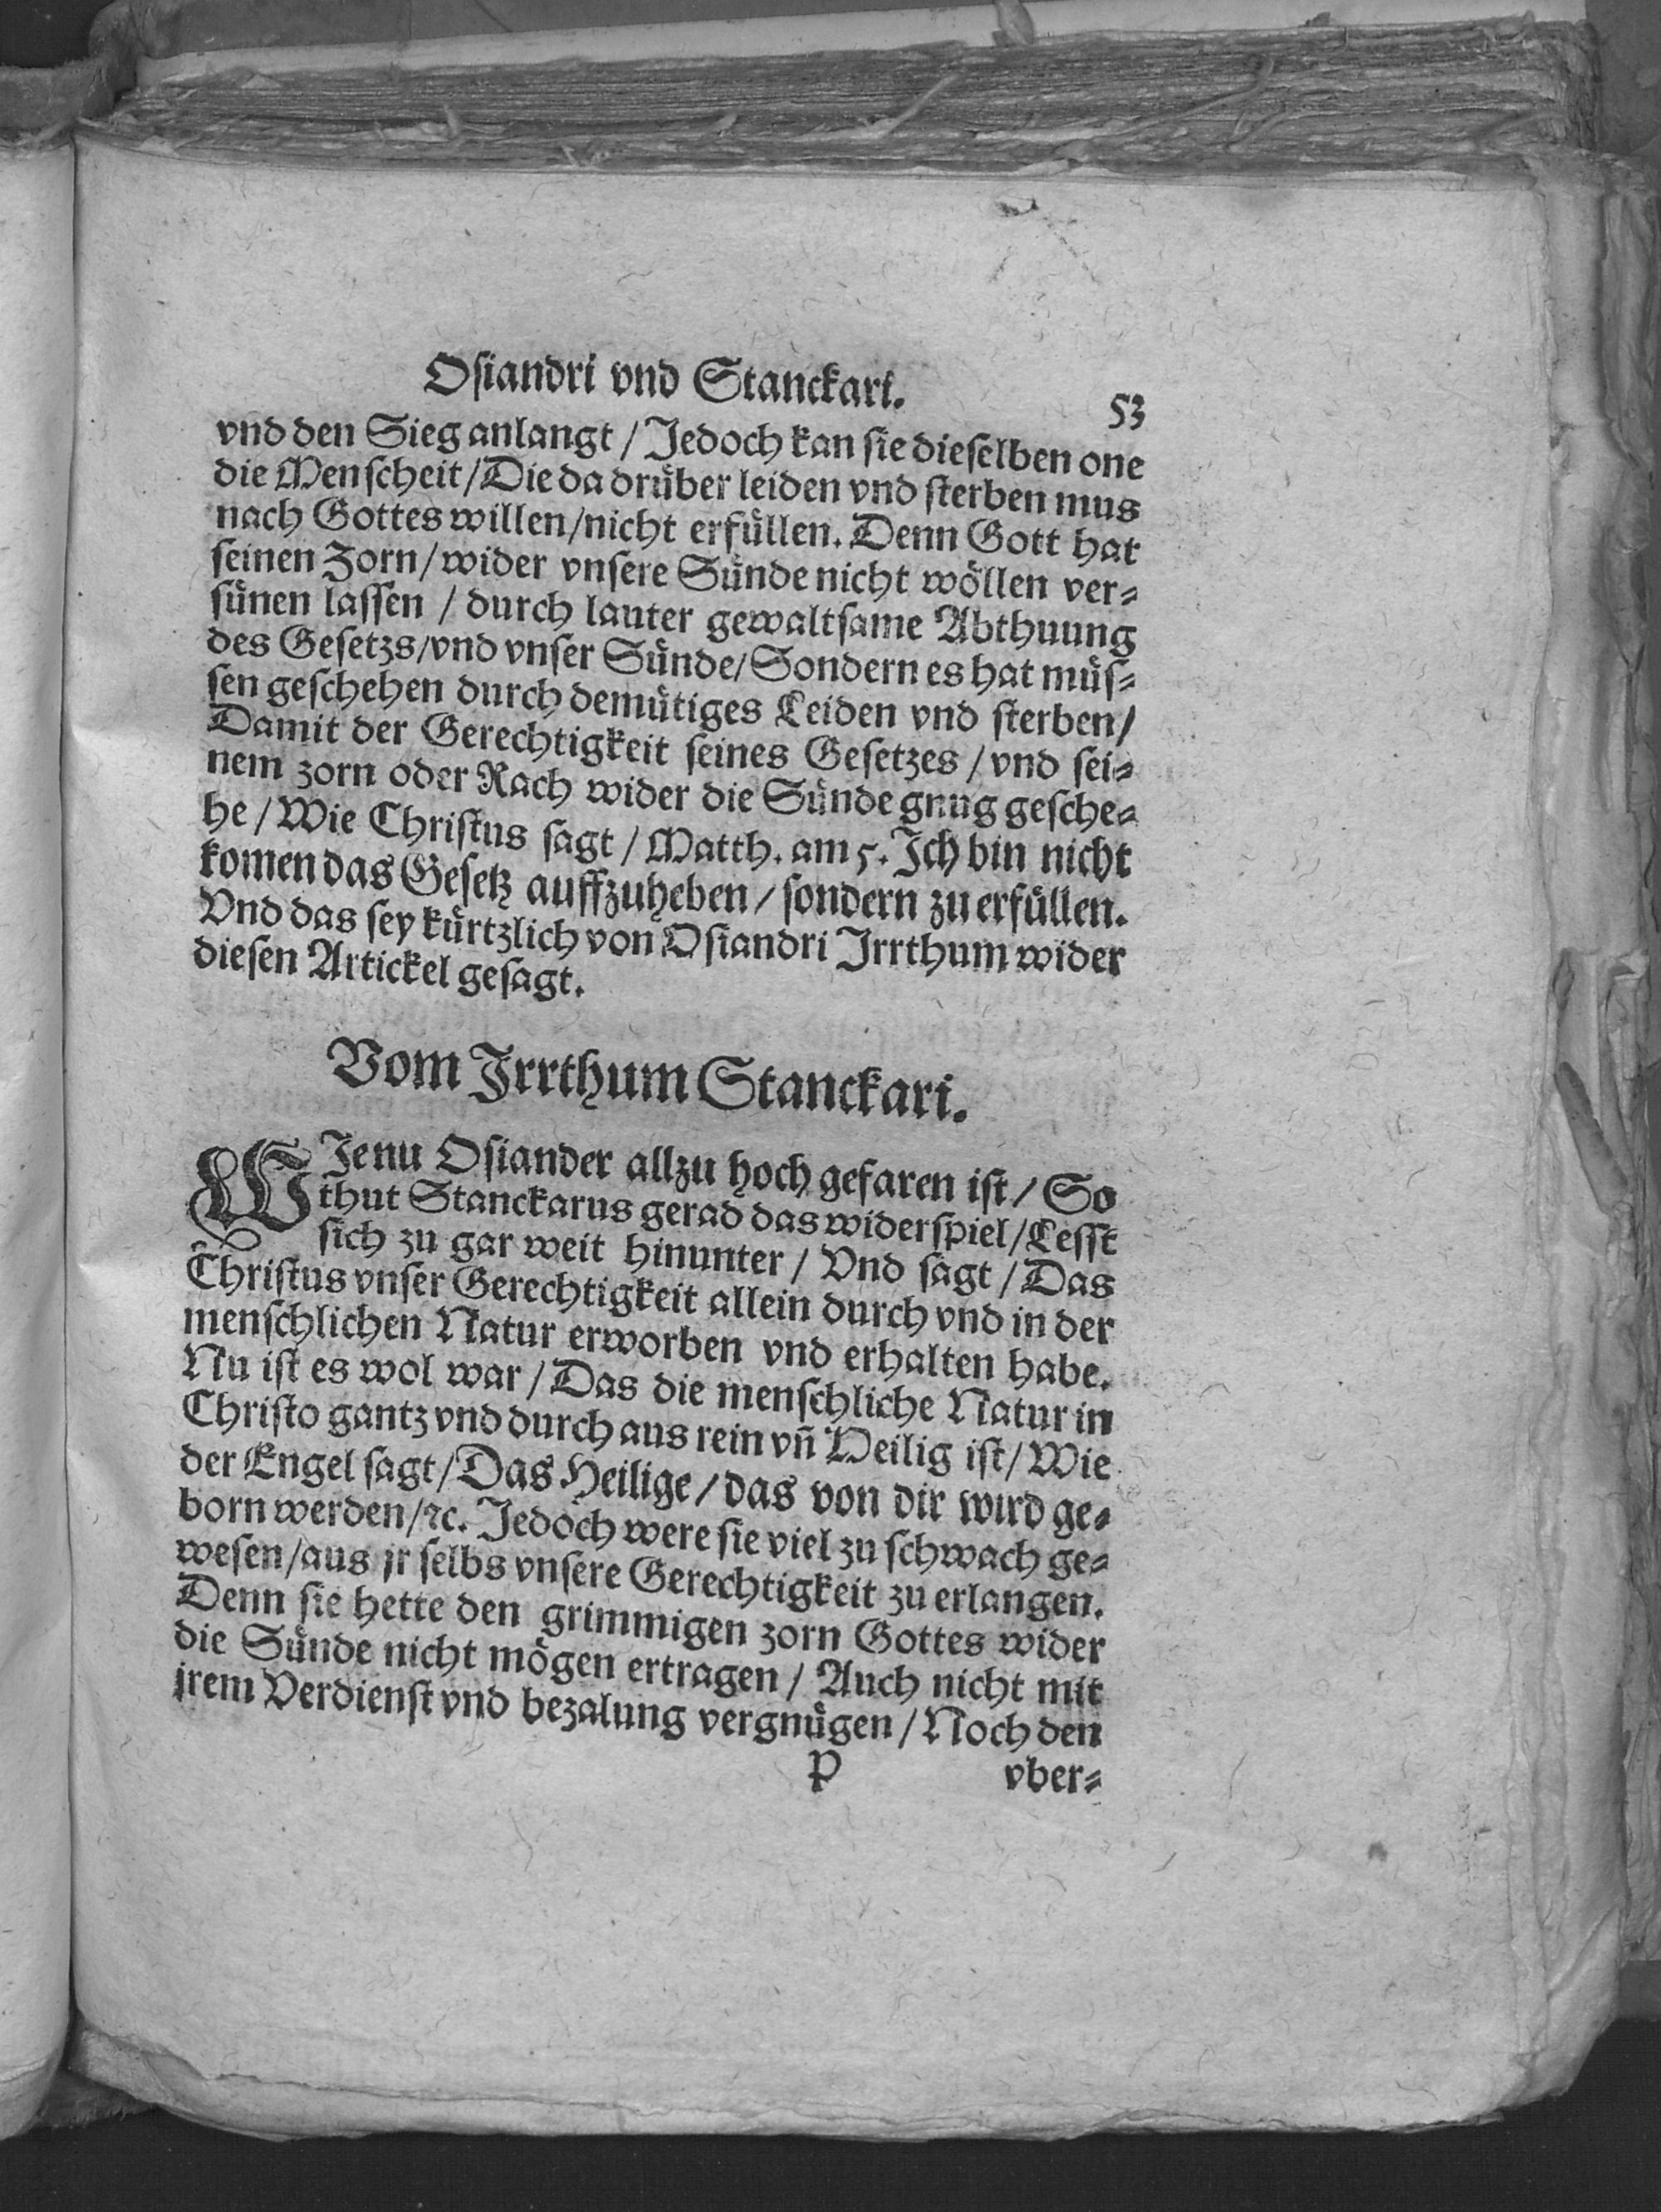 Osiandri vnd Stanckari.
53
vnd den Sieg anlangt / Jedoch kan sie dieselben one
die Menscheit / Die da drüber leiden vnd sterben mus
nach Gottes willen / nicht erfüllen. Denn Gott hat
seinen Zorn / wider vnsere Sünde nicht wöllen ver⸗
sünen lassen / durch lauter gewaltsame Abthuung
des Gesetzs / vnd vnser Sünde / Sondern es hat müs⸗
sen geschehen durch demütiges Leiden vnd sterben /
Damit der Gerechtigkeit seines Gesetzes / vnd sei⸗
nem zorn oder Rach wider die Sünde gnug gesche⸗
he / Wie Christus sagt / Matth. am 5. Ich bin nicht
komen das Gesetz auffzuheben / sondern zu erfüllen.
Vnd das sey kürtzlich von Osiandri Irrthum wider
diesen Artickel gesagt.
Vom Irrthum Stanckari.
WIe nu Osiander allzu hoch gefaren ist / So
thut Stanckarus gerad das widerspiel / Lesst
sich zu gar weit hinunter / Vnd sagt / Das
Christus vnser Gerechtigkeit allein durch vnd in der
menschlichen Natur erworben vnd erhalten habe.
Nu ist es wol war / Das die menschliche Natur in
Christo gantz vnd durch aus rein vn̄ Heilig ist / Wie
der Engel sagt / Das Heilige / das von dir wird ge⸗
born werden / ꝛc. Jedoch were sie viel zu schwach ge⸗
wesen / aus jr selbs vnsere Gerechtigkeit zu erlangen.
Denn sie hette den grimmigen zorn Gottes wider
die Sünde nicht mögen ertragen / Auch nicht mit
jrem Verdienst vnd bezalung vergnügen / Noch den
P
vber⸗